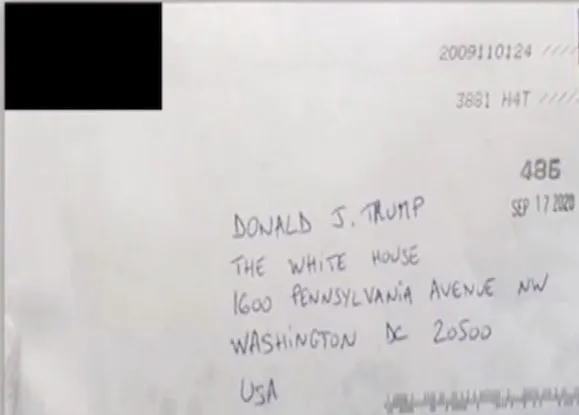 2009110124 ////
3881 H4T /////
486
SEP 17 2020
DONALD J. TRUMP
THE WHITE HOUSE
1600 PENNSYLVANiA AVENUE NW
WASHiNGTON DC 20500
USA